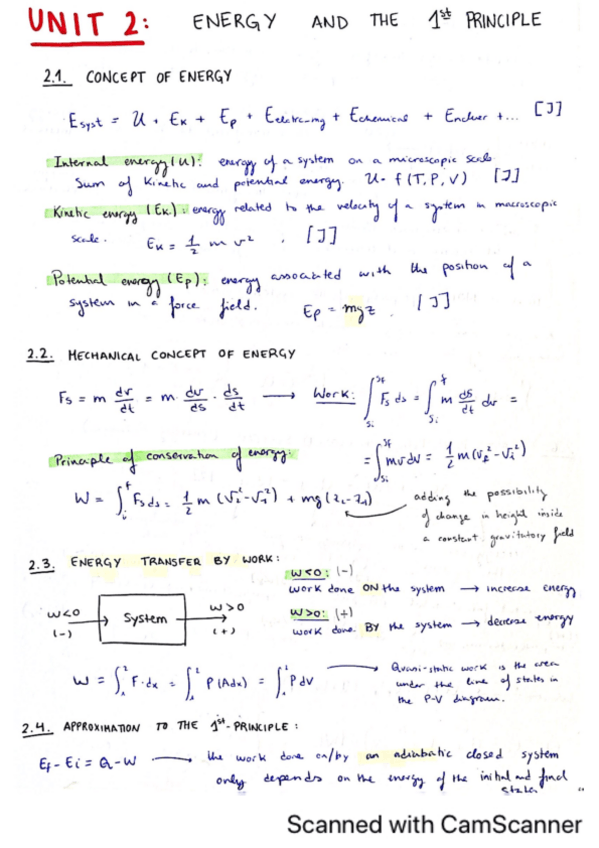 UNIT 2: ENERGY AND THE 1st PRINCIPLE
2.1. CONCEPT OF ENERGY
Esyst = U + EK + Ep + Eelectro-mg + Echemical + Enclear + ... [J]
Internal energy (U): energy of a system on a microscopic scale.
Sum of Kinetic and potential energy. U = f(T, P, V) [J]
Kinetic energy (EK): energy related to the velocity of a system in macroscopic
scale. EK = 1/2 m v² . [J]
Potential energy (Ep): energy associated with the position of a
system in a force field. Ep = mgz . [J]
2.2. MECHANICAL CONCEPT OF ENERGY
Fs = m dv/dt = m · dv/ds · ds/dt → Work: ∫ Fs ds = ∫ m ds/dt dv =
= ∫ mv dv = 1/2 m (vf² - vi²)
Principle of conservation of energy:
W = ∫ Fs ds = 1/2 m (v2² - v1²) + mg (z2 - z1)
adding the possibility
of change in height inside
a constant gravitatory field
2.3. ENERGY TRANSFER BY WORK:
W<0: (-)
work done ON the system → increase energy
W>0: (+)
work done BY the system → decrease energy
W<0 (-) System W>0 (+)
W = ∫ F·dx = ∫ P(Adx) = ∫ PdV
Quasi-static work is the area
under the line of states in
the P-V diagram.
2.4. APPROXIMATION TO THE 1st PRINCIPLE:
Ef - Ei = Q - W → the work done on/by an adiabatic closed system
only depends on the energy of the initial and final
states
Scanned with CamScanner